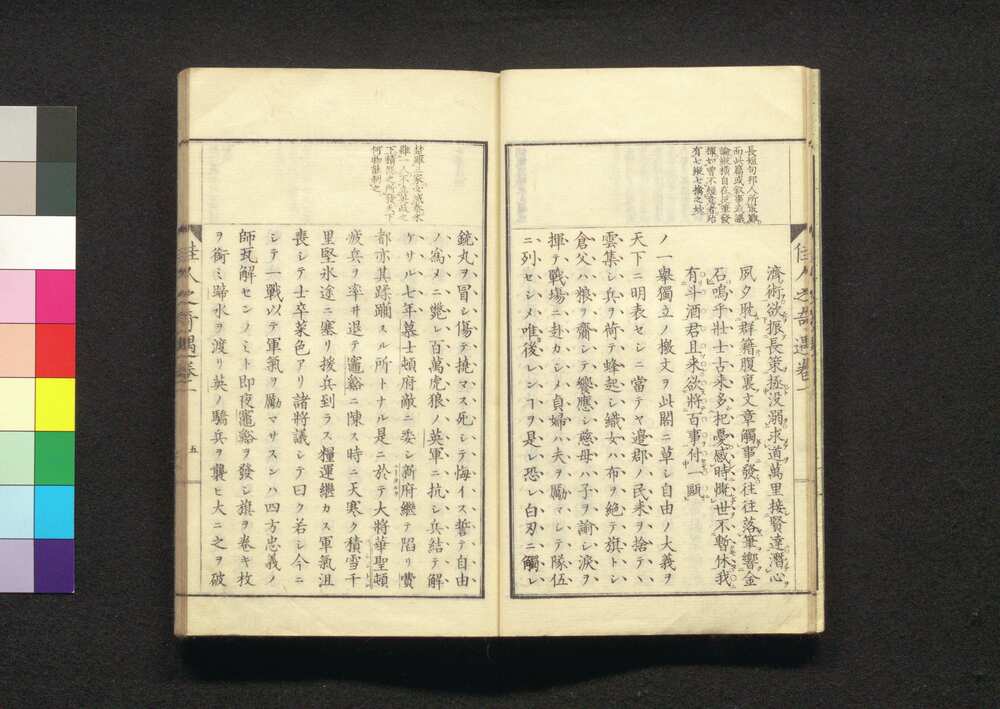 長短句邦人所最難
佳人之奇遇卷一
濟術欲振長策拯沒弱求道萬里接賢達潛心
夙夕耽群籍腹裏文章觸事發往往落筆響金
石嗚乎壯士古來多把憂感時慨世不暫休我
有斗酒君且來欲將百事付一
ノ一舉獨立ノ檄文ヲ此閣ニ草シ自由ノ大義ヲ
天下ニ明表セシニ當テヤ邊郡ノ民耒ヲ捨テ
雲集シ兵ヲ荷テ蜂起シ織女ハ布ヲ絶テ旗トシ
倉父ハ粮ヲ齎シテ饗應シ慈母ハ子ヲ諭シ淚ヲ
揮テ戰場ニ赴カシメ貞婦ハ夫ヲ勵マシテ隊伍
ニ列セシメ唯後レンヿヲ是レ恐レ白刃ニ觸レ
下積怒之所發天下
何物能制之
銃丸ヲ冒シ傷テ撓マス死シテ悔イス誓テ自由
ノ爲メニ斃レ百萬虎狼ノ英軍ニ抗シ兵結テ解
ケサル七年慕士頓府敵ニ委シ新府継テ陷リ費
都亦其蹂躙スル所トナル是ニ於テ大將華聖頓
疲兵ヲ率ヰ退テ竈谿ニ陳ス時ニ天寒ク積雪千
里堅氷途ニ塞リ援兵到ラス糧運繼カス軍氣沮
喪シテ士卒菜色アリ諸將議シテ曰ク若シ今ニ
シテ一戰以テ軍氣ヲ勵マサスンハ四方忠義ノ
師瓦解センノミト即夜竈谿ヲ發シ旗ヲ卷キ枚
ヲ銜ミ蹄水ヲ渡リ英ノ驕兵ヲ襲ヒ大ニ之ヲ破
佳人之奇遇卷一
五